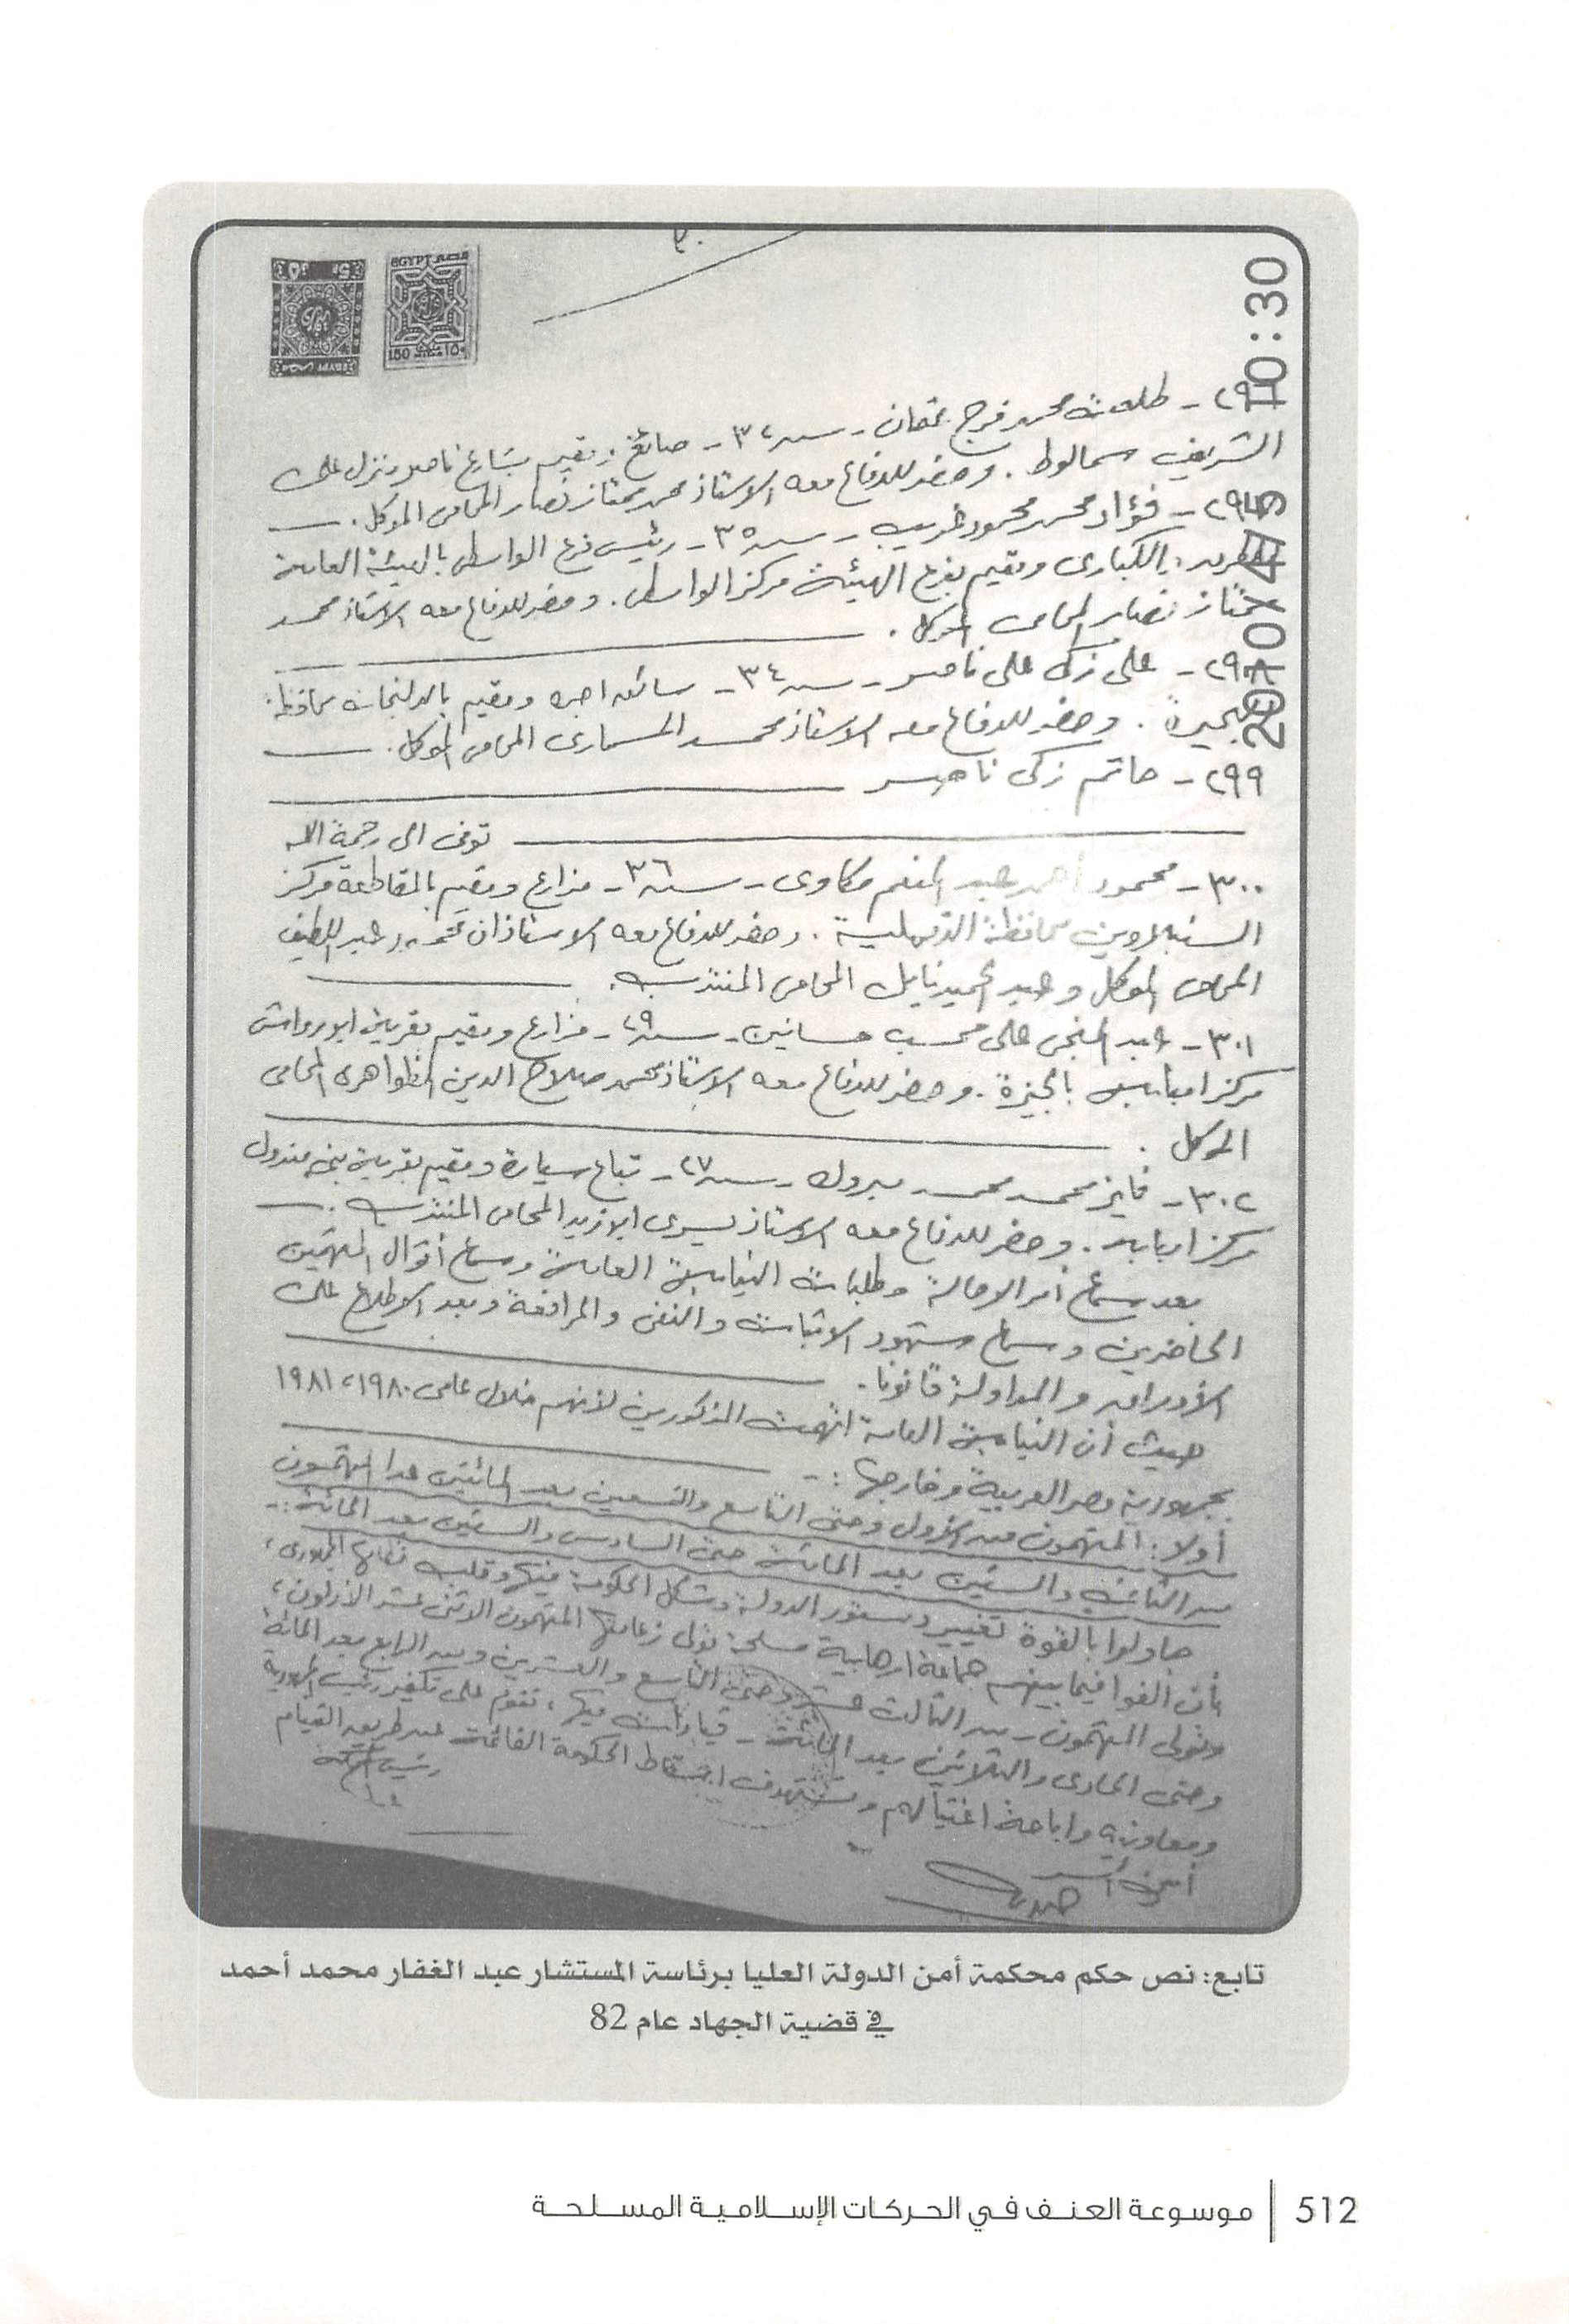 ٣٠
EGYPT مصر
150 ١٥٠
10:30
٢٩٦ - طلعت محمد فرج - سنه ٣٤ - صائغ ومقيم بشارع ناصر منزل على
الشريف سمالوط . وحضر للدفاع معه الاستاذ محمد ممتاز نصار المحامى الموكل .
فؤاد محمد محمود غريب - سنه ٣٥ - رئيس فرع الواسطى بالهيئة العامة
للطرق والكبارى ومقيم بفرع الهيئة مركز الواسطى . وحضر للدفاع معه الاستاذ محمد
ممتاز نصار المحامى الموكل .
٢٩٨ - على زكى على ناصر - سنه ٣٤ - سائق اجره ومقيم بالدلنجات محافظة
البحيرة . وحضر للدفاع معه الاستاذ محمد المسمارى المحامى الموكل .
٢٩٩ - حاتم زكى ناصر
توفى الى رحمة الله
٣٠٠ - محمود أحمد عبد المنعم مكاوى - سنه ٣٦ - مزارع ومقيم بالمقاطعة مركز
السنبلاوين محافظة الدقهلية . وحضر للدفاع معه الاستاذان عبد اللطيف
المحامى الموكل وعبد الحميد نايل المحامى المنتدب .
٣٠١ - عبد المنجى على محسب حسانين - سنه ٢٩ - مزارع ومقيم بقرية ابو رواش
مركز امبابه بالجيزة . وحضر للدفاع معه الاستاذ محمد صلاح الدين الظواهرى المحامى
الموكل .
٣٠٢ - فايز محمد محمد مبروك - سنه ٢٧ - تباع سيارة ومقيم بقرية
مركز امبابه . وحضر للدفاع معه الاستاذ يسرى ابو زيد المحامى المنتدب .
بعد سماع أمر الاحالة وطلبات النيابة العامة وسماع أقوال المتهمين
الحاضرين وسماع شهود الاثبات والنفى والمرافعة وبعد الاطلاع على
الأوراق والمداولة قانونا .
حيث أن النيابة العامة اتهمت المذكورين لأنهم خلال عامى ١٩٨٠، ١٩٨١
بجمهورية مصر العربية وخارجها : -
أولا : المتهمون من الأول وحتى التاسع والتسعين بعد المائتين عدا المتهمون
من الثانى والستين بعد المائة حتى السادس والستين بعد المائة : -
حاولوا بالقوة تغيير دستور الدولة وشكل الحكومة فيها وقلب نظامها الجمهورى ،
بأن الفوا فيما بينهم جماعة ارهابية مسلحة تولى زعامتها المتهمون الاثنى عشر الأولون ،
وتولى المتهمون - من الثالث عشر وحتى التاسع والعشرين ومن الرابع بعد المائة
وحتى الحادى والثلاثين بعد المائة - قيادات فيها ، تقوم على تكفير رئيس الجمهورية
ومعاونيه واباحة اغتيالهم وتستهدف اسقاط الحكومة القائمة عن طريق القيام
رئيس المحكمة
أمين السر
تابع: نص حكم محكمة أمن الدولة العليا برئاسة المستشار عبد الغفار محمد أحمد
في قضية الجهاد عام 82
512 | موسوعة العنف في الحركات الإسلامية المسلحة